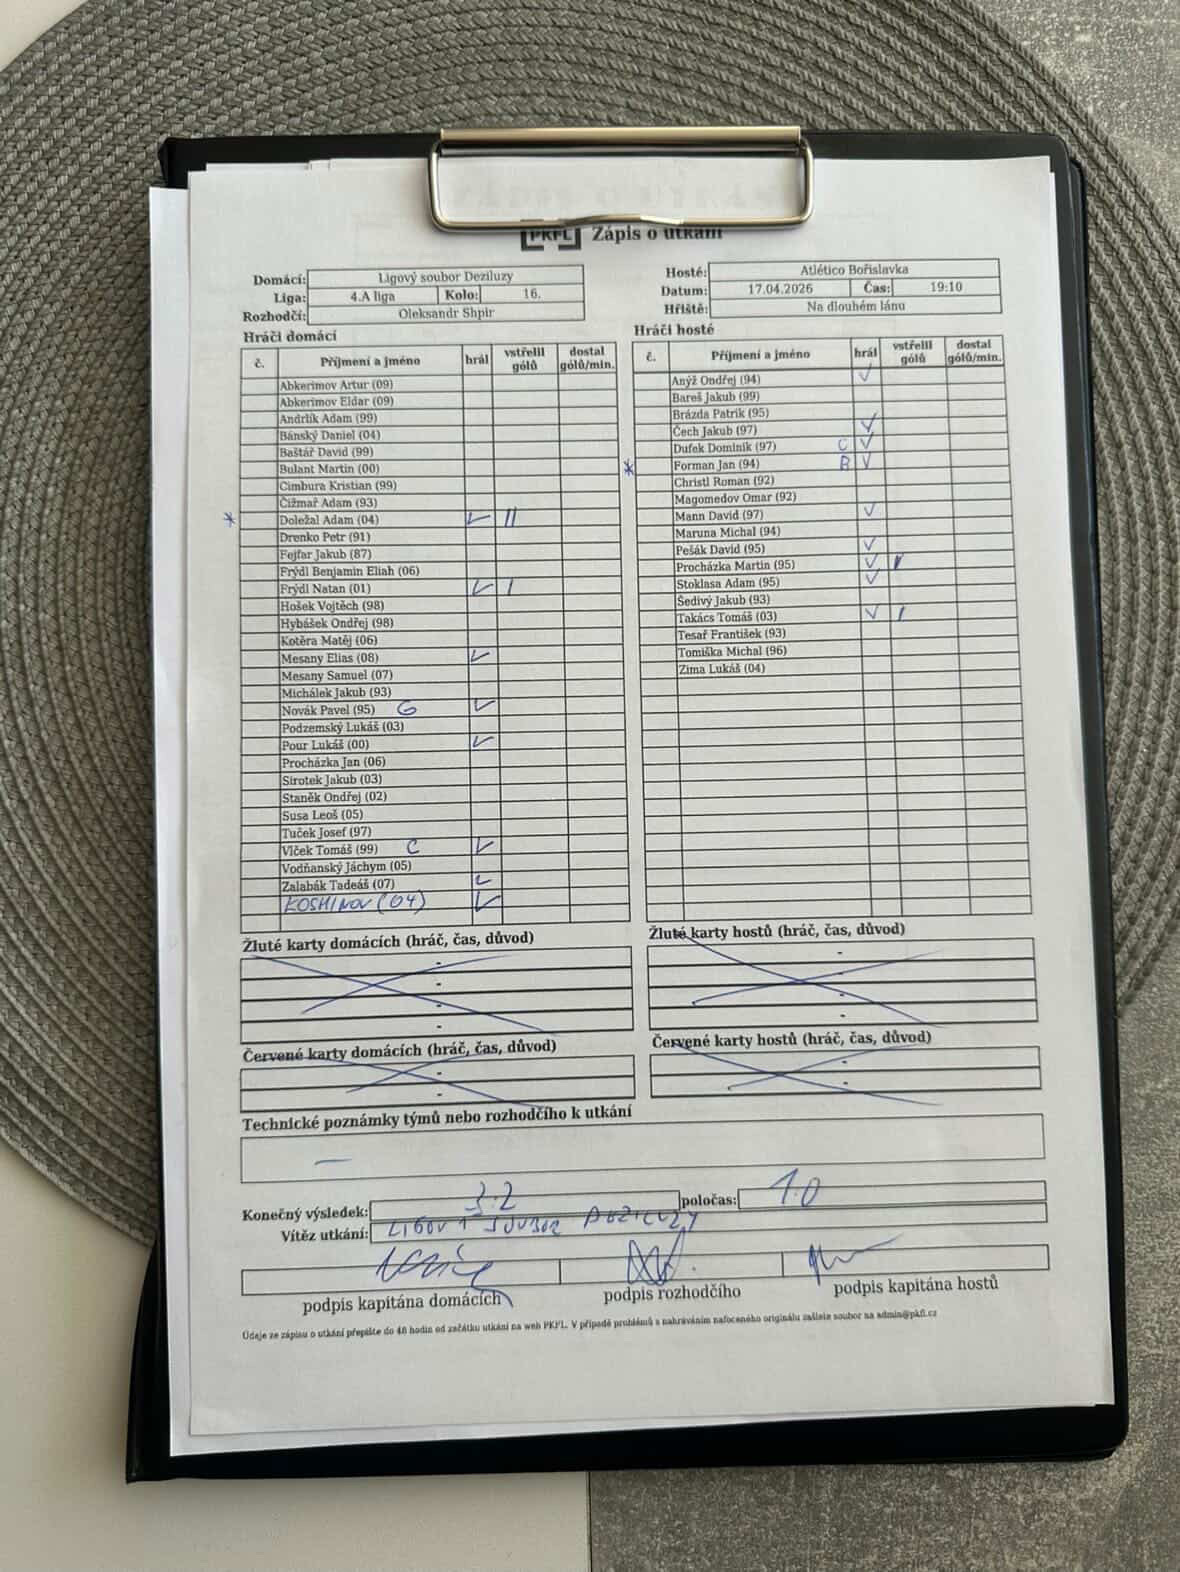 PKFL Zápis o utkání
Domácí: Ligový soubor Deziluzy
Liga: 4.A liga Kolo: 16.
Rozhodčí: Oleksandr Shpir
Hosté: Atlético Bořislavka
Datum: 17.04.2026 Čas: 19:10
Hřiště: Na dlouhém lánu
Hráči domácí
č. Příjmení a jméno hrál vstřelil gólů dostal gólů/min.
Abkerimov Artur (09)
Abkerimov Eldar (09)
Andrlík Adam (99)
Bánský Daniel (04)
Baštář David (99)
Bulant Martin (00)
Cimbura Kristian (99)
Čižmař Adam (93)
* Doležal Adam (04) ✓ II
Drenko Petr (91)
Fejfar Jakub (87)
Frýdl Benjamin Eliah (06)
Frýdl Natan (01) ✓ I
Hošek Vojtěch (98)
Hybášek Ondřej (98)
Kotěra Matěj (06)
Mesany Elias (08) ✓
Mesany Samuel (07)
Michálek Jakub (93)
Novák Pavel (95) G ✓
Podzemský Lukáš (03)
Pour Lukáš (00) ✓
Procházka Jan (06)
Sirotek Jakub (03)
Staněk Ondřej (02)
Susa Leoš (05)
Tuček Josef (97)
Vlček Tomáš (99) C ✓
Vodňanský Jáchym (05)
Zalabák Tadeáš (07) ✓
KOSHINOV (04) ✓
Hráči hosté
č. Příjmení a jméno hrál vstřelil gólů dostal gólů/min.
Anýž Ondřej (94) ✓
Bareš Jakub (99)
Brázda Patrik (95)
Čech Jakub (97) ✓
Dufek Dominik (97) C ✓
* Forman Jan (94) B ✓
Christl Roman (92)
Magomedov Omar (92)
Mann David (97) ✓
Maruna Michal (94)
Pešák David (95) ✓
Procházka Martin (95) ✓ I
Stoklasa Adam (95) ✓
Šedivý Jakub (93)
Takács Tomáš (03) ✓ I
Tesař František (93)
Tomiška Michal (96)
Zima Lukáš (04)
Žluté karty domácích (hráč, čas, důvod)
-
-
-
Žluté karty hostů (hráč, čas, důvod)
-
-
-
-
Červené karty domácích (hráč, čas, důvod)
-
-
Červené karty hostů (hráč, čas, důvod)
-
-
Technické poznámky týmů nebo rozhodčího k utkání
—
Konečný výsledek: 3:2 poločas: 1:0
Vítěz utkání: LIGOVÝ SOUBOR DEZILUZY
podpis kapitána domácích podpis rozhodčího podpis kapitána hostů
Údaje ze zápisu o utkání přepište do 48 hodin od začátku utkání na web PKFL. V případě problémů s nahráváním nafoceného originálu zašlete soubor na admin@pkfl.cz